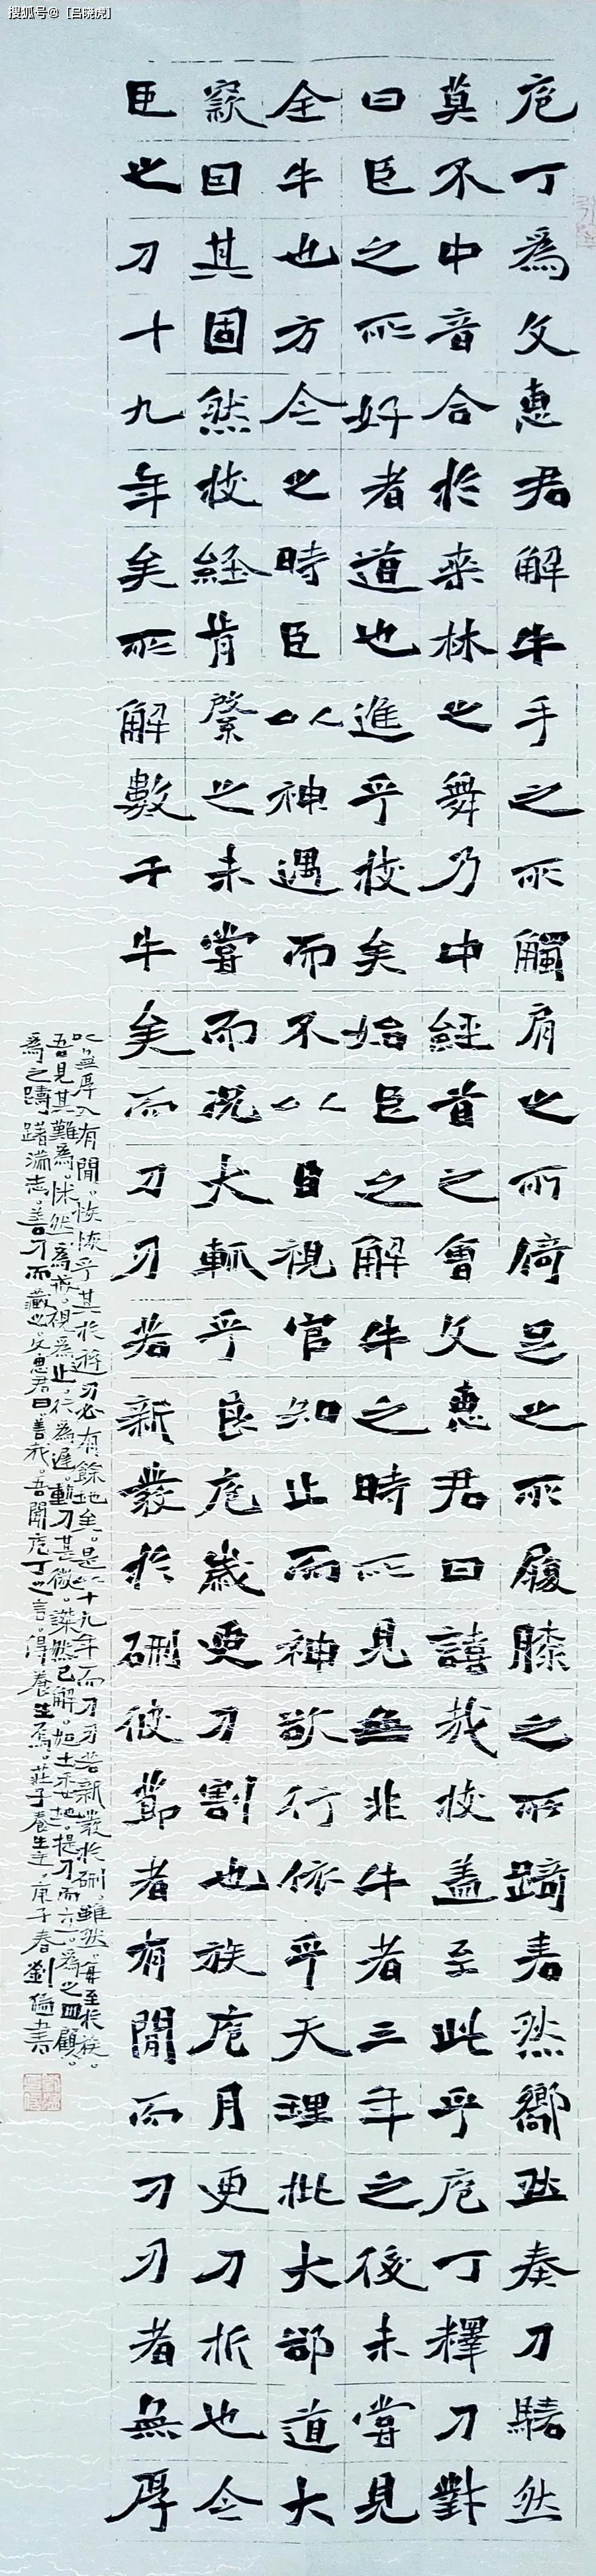 搜狐号@［吕晓虎］
庖丁爲文惠君解牛手之所觸肩之所倚足之所履膝之所踦砉然嚮然奏刀騞然
莫不中音合於桒林之舞乃中經首之會文惠君曰譆哉技蓋至此乎庖丁釋刀對
曰臣之所好者道也進乎技矣始臣之解牛之時所見無非牛者三年之後未嘗見
全牛也方今之時臣以神遇而不以目視官知止而神欲行依乎天理批大郤道大
窾因其固然技經肯綮之未嘗而況大軱乎良庖歲更刀割也族庖月更刀折也今
臣之刀十九年矣所解數千牛矣而刀刃若新發於硎彼節者有閒而刀刃者無厚
以無厚入有閒。恢恢乎其於遊刃必有餘地矣。是以十九年而刀刃若新發於硎。雖然。每至於族。
吾見其難爲。怵然爲戒。視爲止。行爲遲。動刀甚微。謋然已解。如土委地。提刀而立。爲之四顧。
爲之躊躇滿志。善刀而藏之。文惠君曰。善哉。吾聞庖丁之言。得養生焉。莊子養生主。庚子春劉書